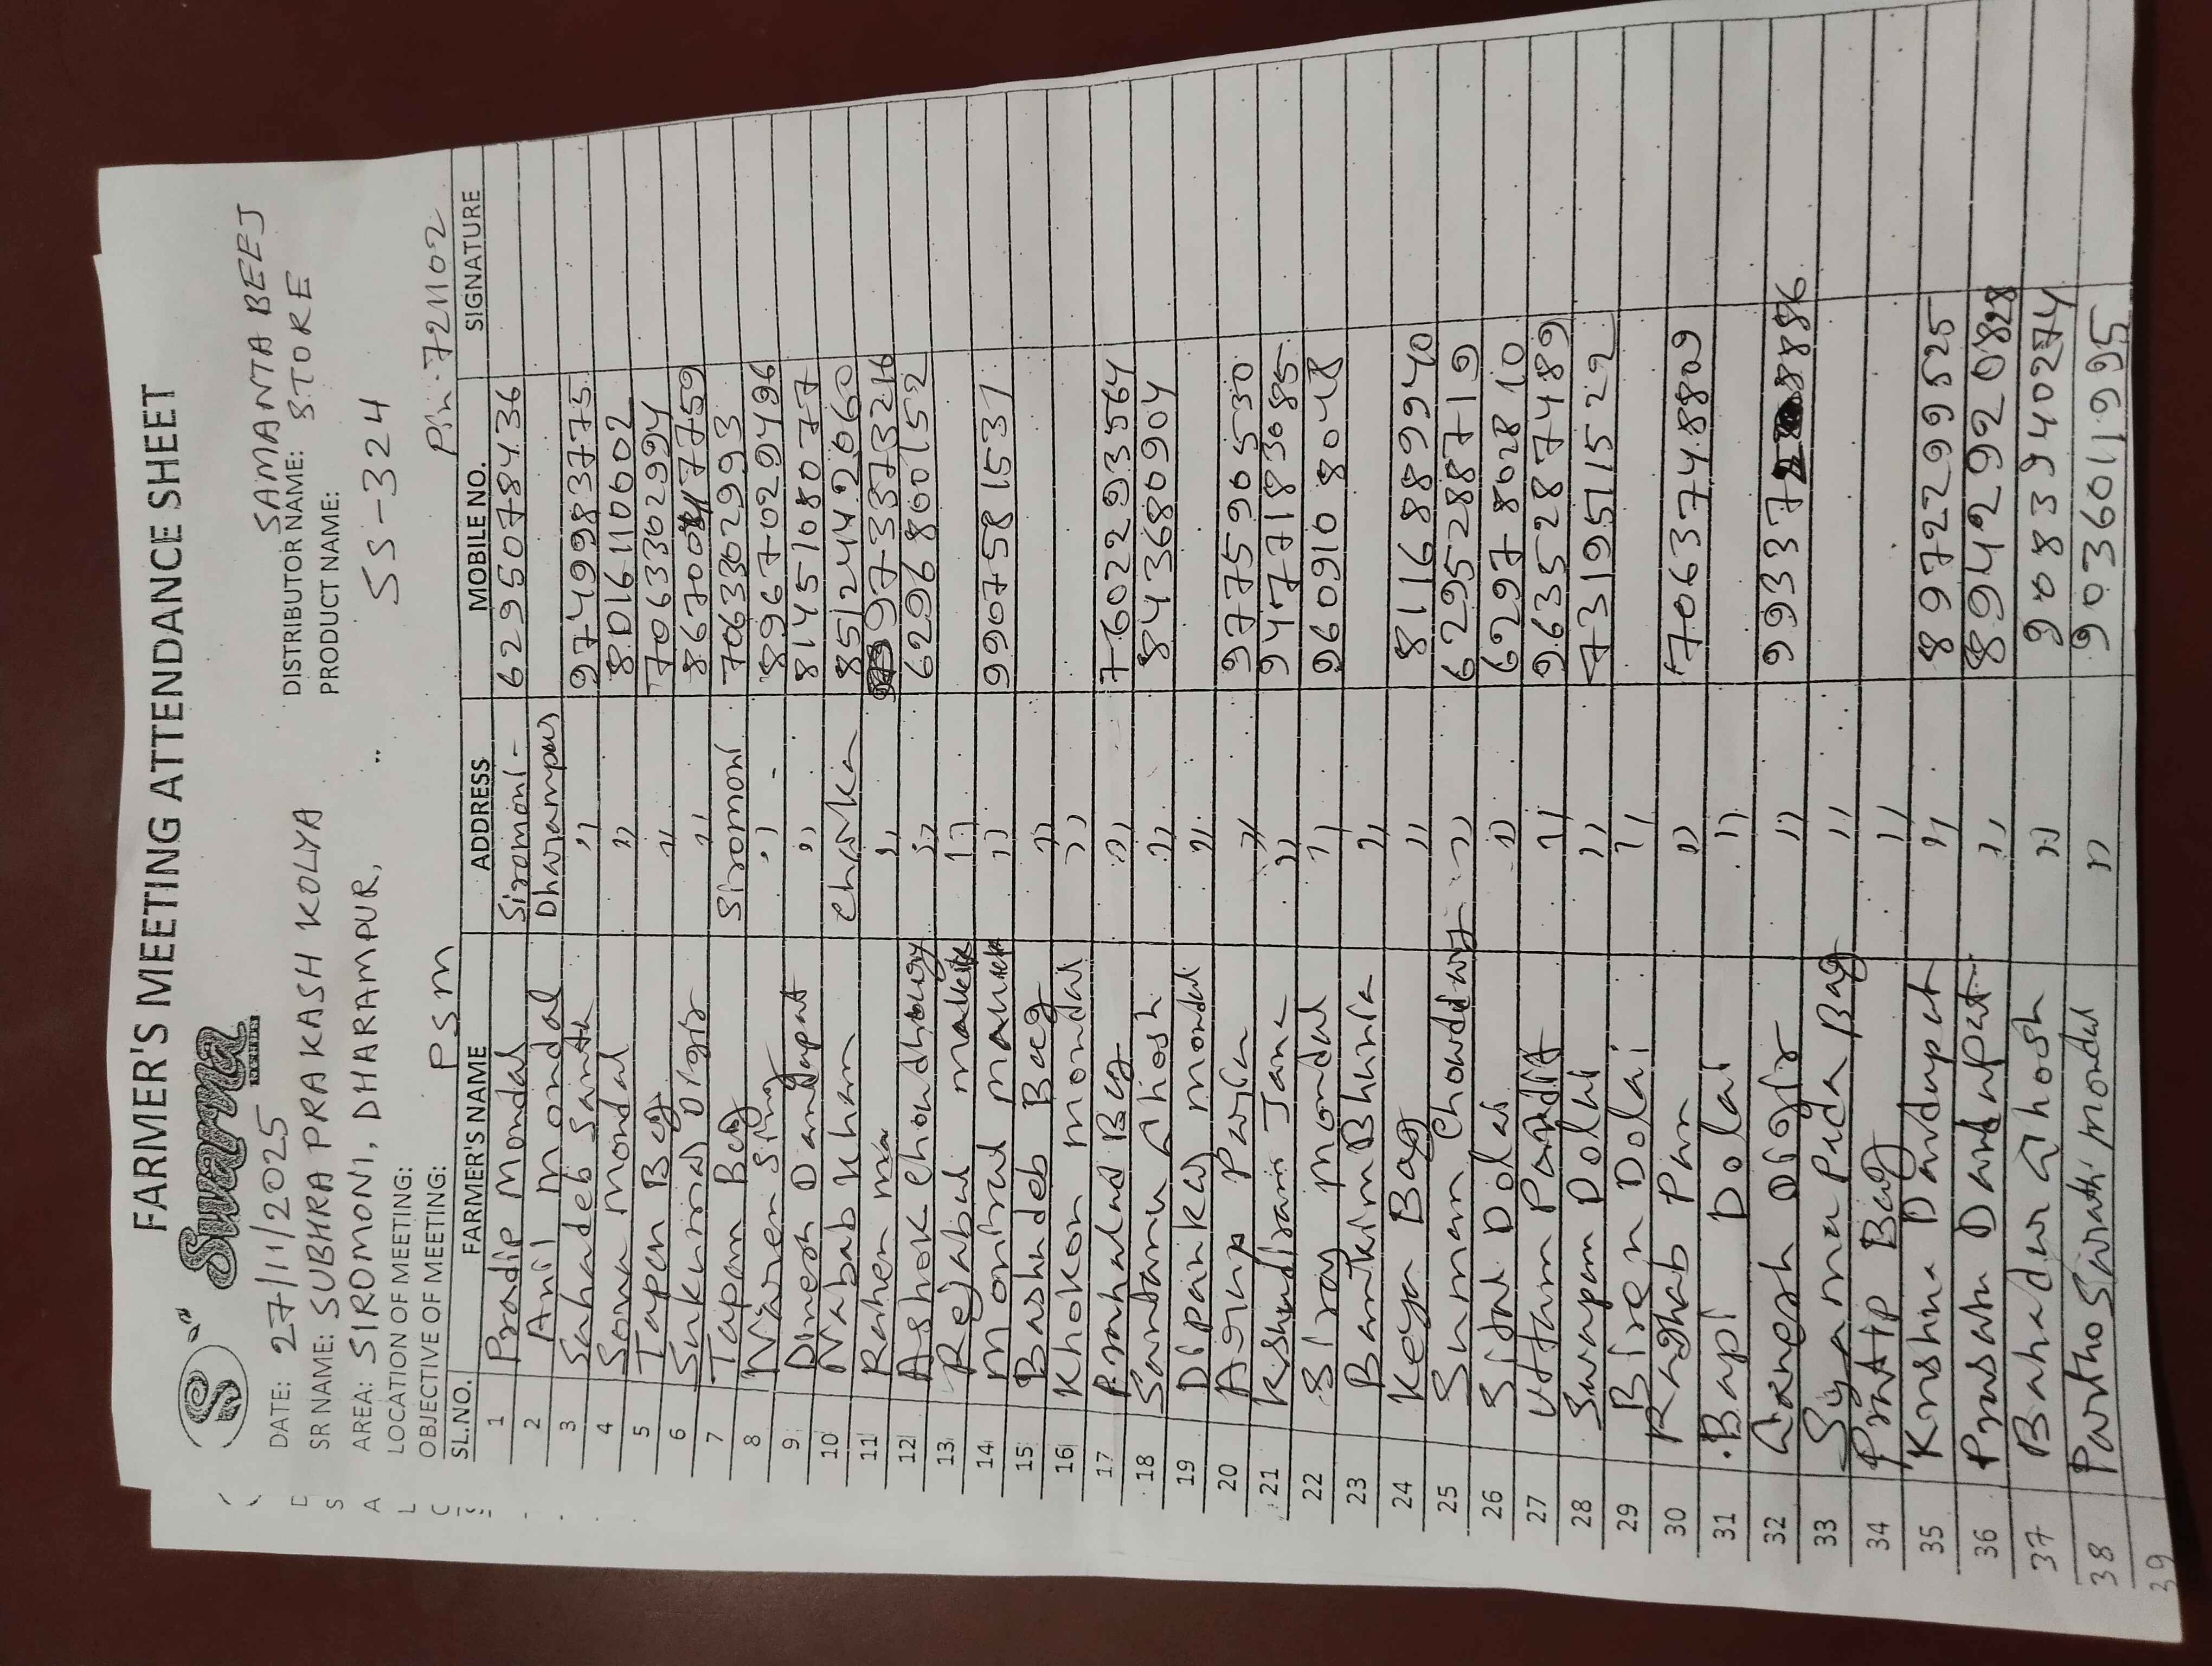 FARMER'S MEETING ATTENDANCE SHEET
Swarna
DATE: 27/11/2025
DISTRIBUTOR NAME: SAMANTA BEEJ STORE
SR NAME: SUBHRA PRAKASH KOLYA
PRODUCT NAME: SS-324
AREA: SIROMONI, DHARAMPUR,
LOCATION OF MEETING:
OBJECTIVE OF MEETING: PSM Pin-721102
SL.NO. FARMER'S NAME ADDRESS MOBILE NO. SIGNATURE
1 Pradip Mondal Siromoni- 6295078436
2 Anil Mondal Dharampur
3 Sahadeb Santra " 9749983775
4 Soma Mondal " 8016110602
5 Tapan Bag " 7063302994
6 Sukumar Digir " 8670047759
7 Tapan Bag Siromoni 7063302993
8 Naren Sing " 8967029496
9 Dinesh Dandapat " 8145108077
10 Nabab Khan Charka 8512442060
11 Rahen ma " 9733373216
12 Ashok Chowdhowry " 6296800152
13 Rejabul mallik "
14 Monirul mallick " 9907581531
15 Bashudeb Bag "
16 Khokon mondal "
17 Pranhalad Bag " 7602293564
18 Santanu Ghosh " 843680904
19 Dipankar mondal "
20 Asrup Paria " 9775905530
21 Kshudiram Jana " 9477183085
22 Siraj mondal " 9609108048
23 Bankim Bhunia "
24 Keya Bag " 8116889940
25 Suman Chowdury " 6295288719
26 Sital Dolai " 6297802810
27 Uttam Pandit " 9635287489
28 Swapan Dolui " 7319511522
29 Biren Dolai "
30 Radhab Pan " 7063748809
31 Bapi Dolai "
32 Ganesh Digir " 99337 8886
33 Syama Pada Bag "
34 Pratip Bag "
35 Krishna Dandapat " 8972299525
36 Prasanta Dandapat " 8942920828
37 Bahadur Ghosh " 9083940274
38 Partho Sarathi Mondal " 9036011995
39